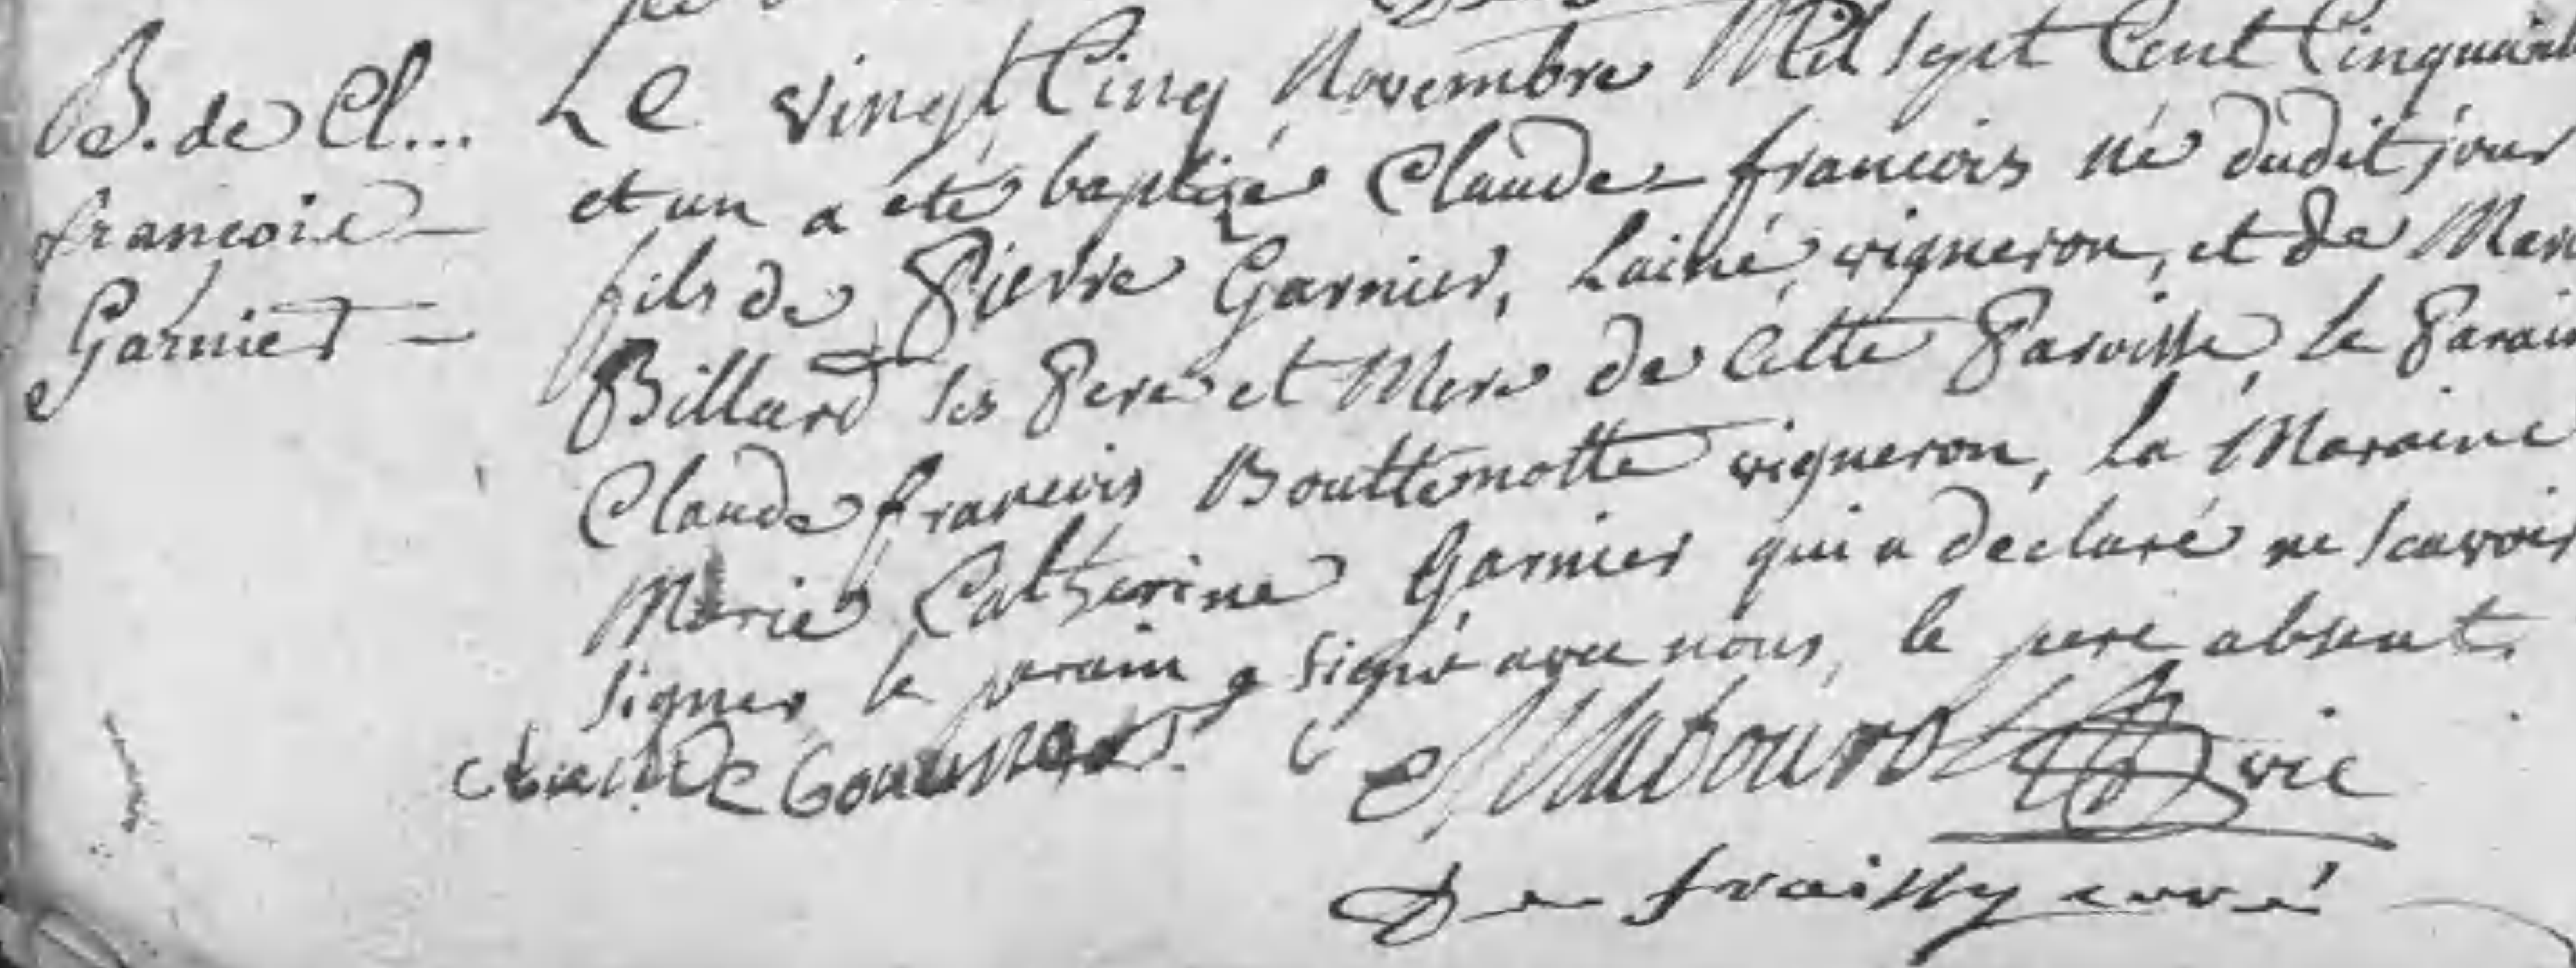 B. de Cl...
francois -
Garnier -
Le vingt Cinq Novembre Mil Sept Cent Cinquante
et un a eté baptizé Claude - francois né dudit jour
fils de Pierre Garnier, Lainé, vigneron, et de Marie
Billard ses Pere et Mere de Cette Paroisse, le Parain
Claude francois Bouttemotte vigneron, la Maraine
Marie Catherine Garnier qui a declaré ne scavoir
signer le parain a signé avec nous, le pere absent.
Claude
vic
De fraissy curé